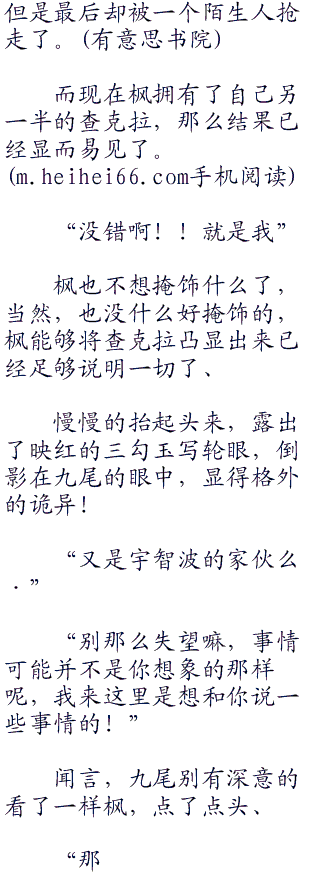 但是最后却被一个陌生人抢
走了。(有意思书院)
而现在枫拥有了自己另
一半的查克拉，那么结果已
经显而易见了。
(m.heihei66.com手机阅读)
“没错啊！！就是我”
枫也不想掩饰什么了，
当然，也没什么好掩饰的，
枫能够将查克拉凸显出来已
经足够说明一切了、
慢慢的抬起头来，露出
了映红的三勾玉写轮眼，倒
影在九尾的眼中，显得格外
的诡异！
“又是宇智波的家伙么
．”
“别那么失望嘛，事情
可能并不是你想象的那样
呢，我来这里是想和你说一
些事情的！”
闻言，九尾别有深意的
看了一样枫，点了点头、
“那